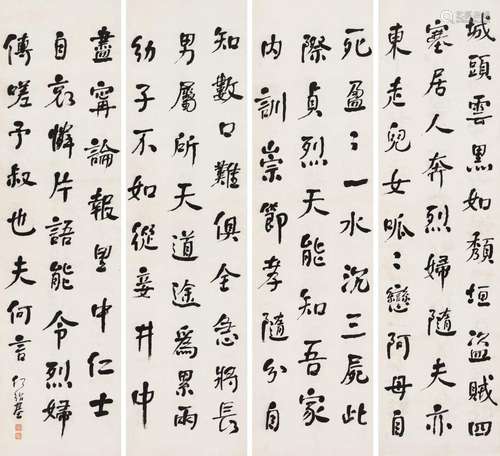 城頭雲黑如頹垣盜賊四
塞居人奔烈婦隨夫亦
東走兒女呱〻戀阿母自
死盈〻一水沉三屍此
際貞烈天能知吾家
內訓崇節孝隨分自
知數口難俱全急將長
男屬所天道途爲累兩
幼子不如從妾井中
盡甯論報里中仁士
自哀憐片語能令烈婦
傳嗟予叔也夫何言
何紹基